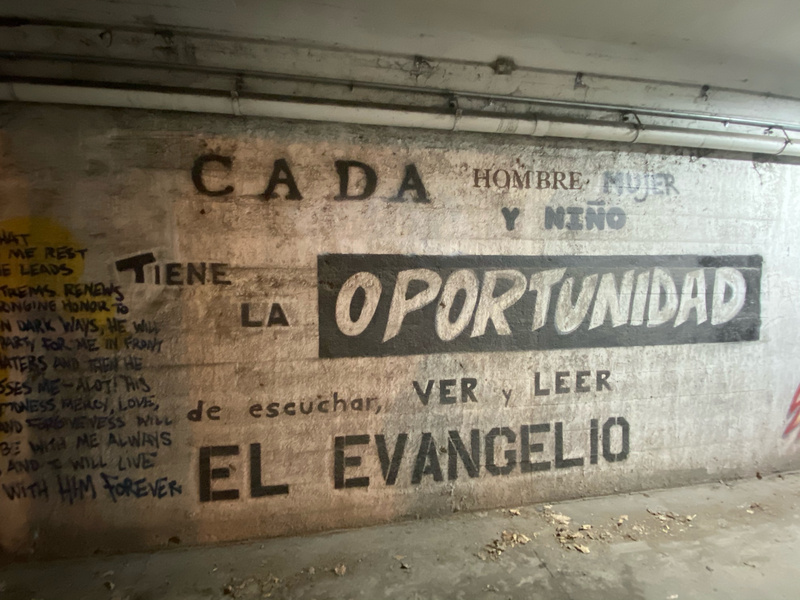 CADA HOMBRE MUJER
Y NIÑO
TIENE
LA OPORTUNIDAD
de escuchar, VER y LEER
EL EVANGELIO
HAT
ME REST
E LEADS
STREMS RENEWS
BRINGING HONOR TO
IN DARK WAYS, HE WILL
PARTY FOR ME IN FRONT
HATERS AND THEN HE
SSES ME - ALOT! HIS
MERCY, LOVE,
AND FORGIVENESS WILL
BE WITH ME ALWAYS
AND I WILL LIVE
WITH HIM FOREVER